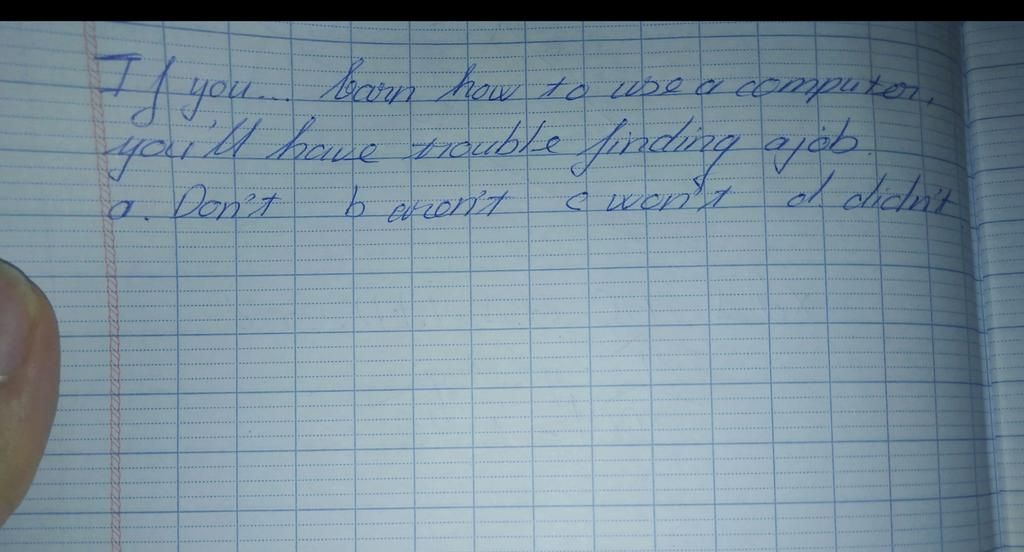 If you... learn how to use a computer,
you'll have trouble finding a job.
a. Don't b aren't c won't d didn't